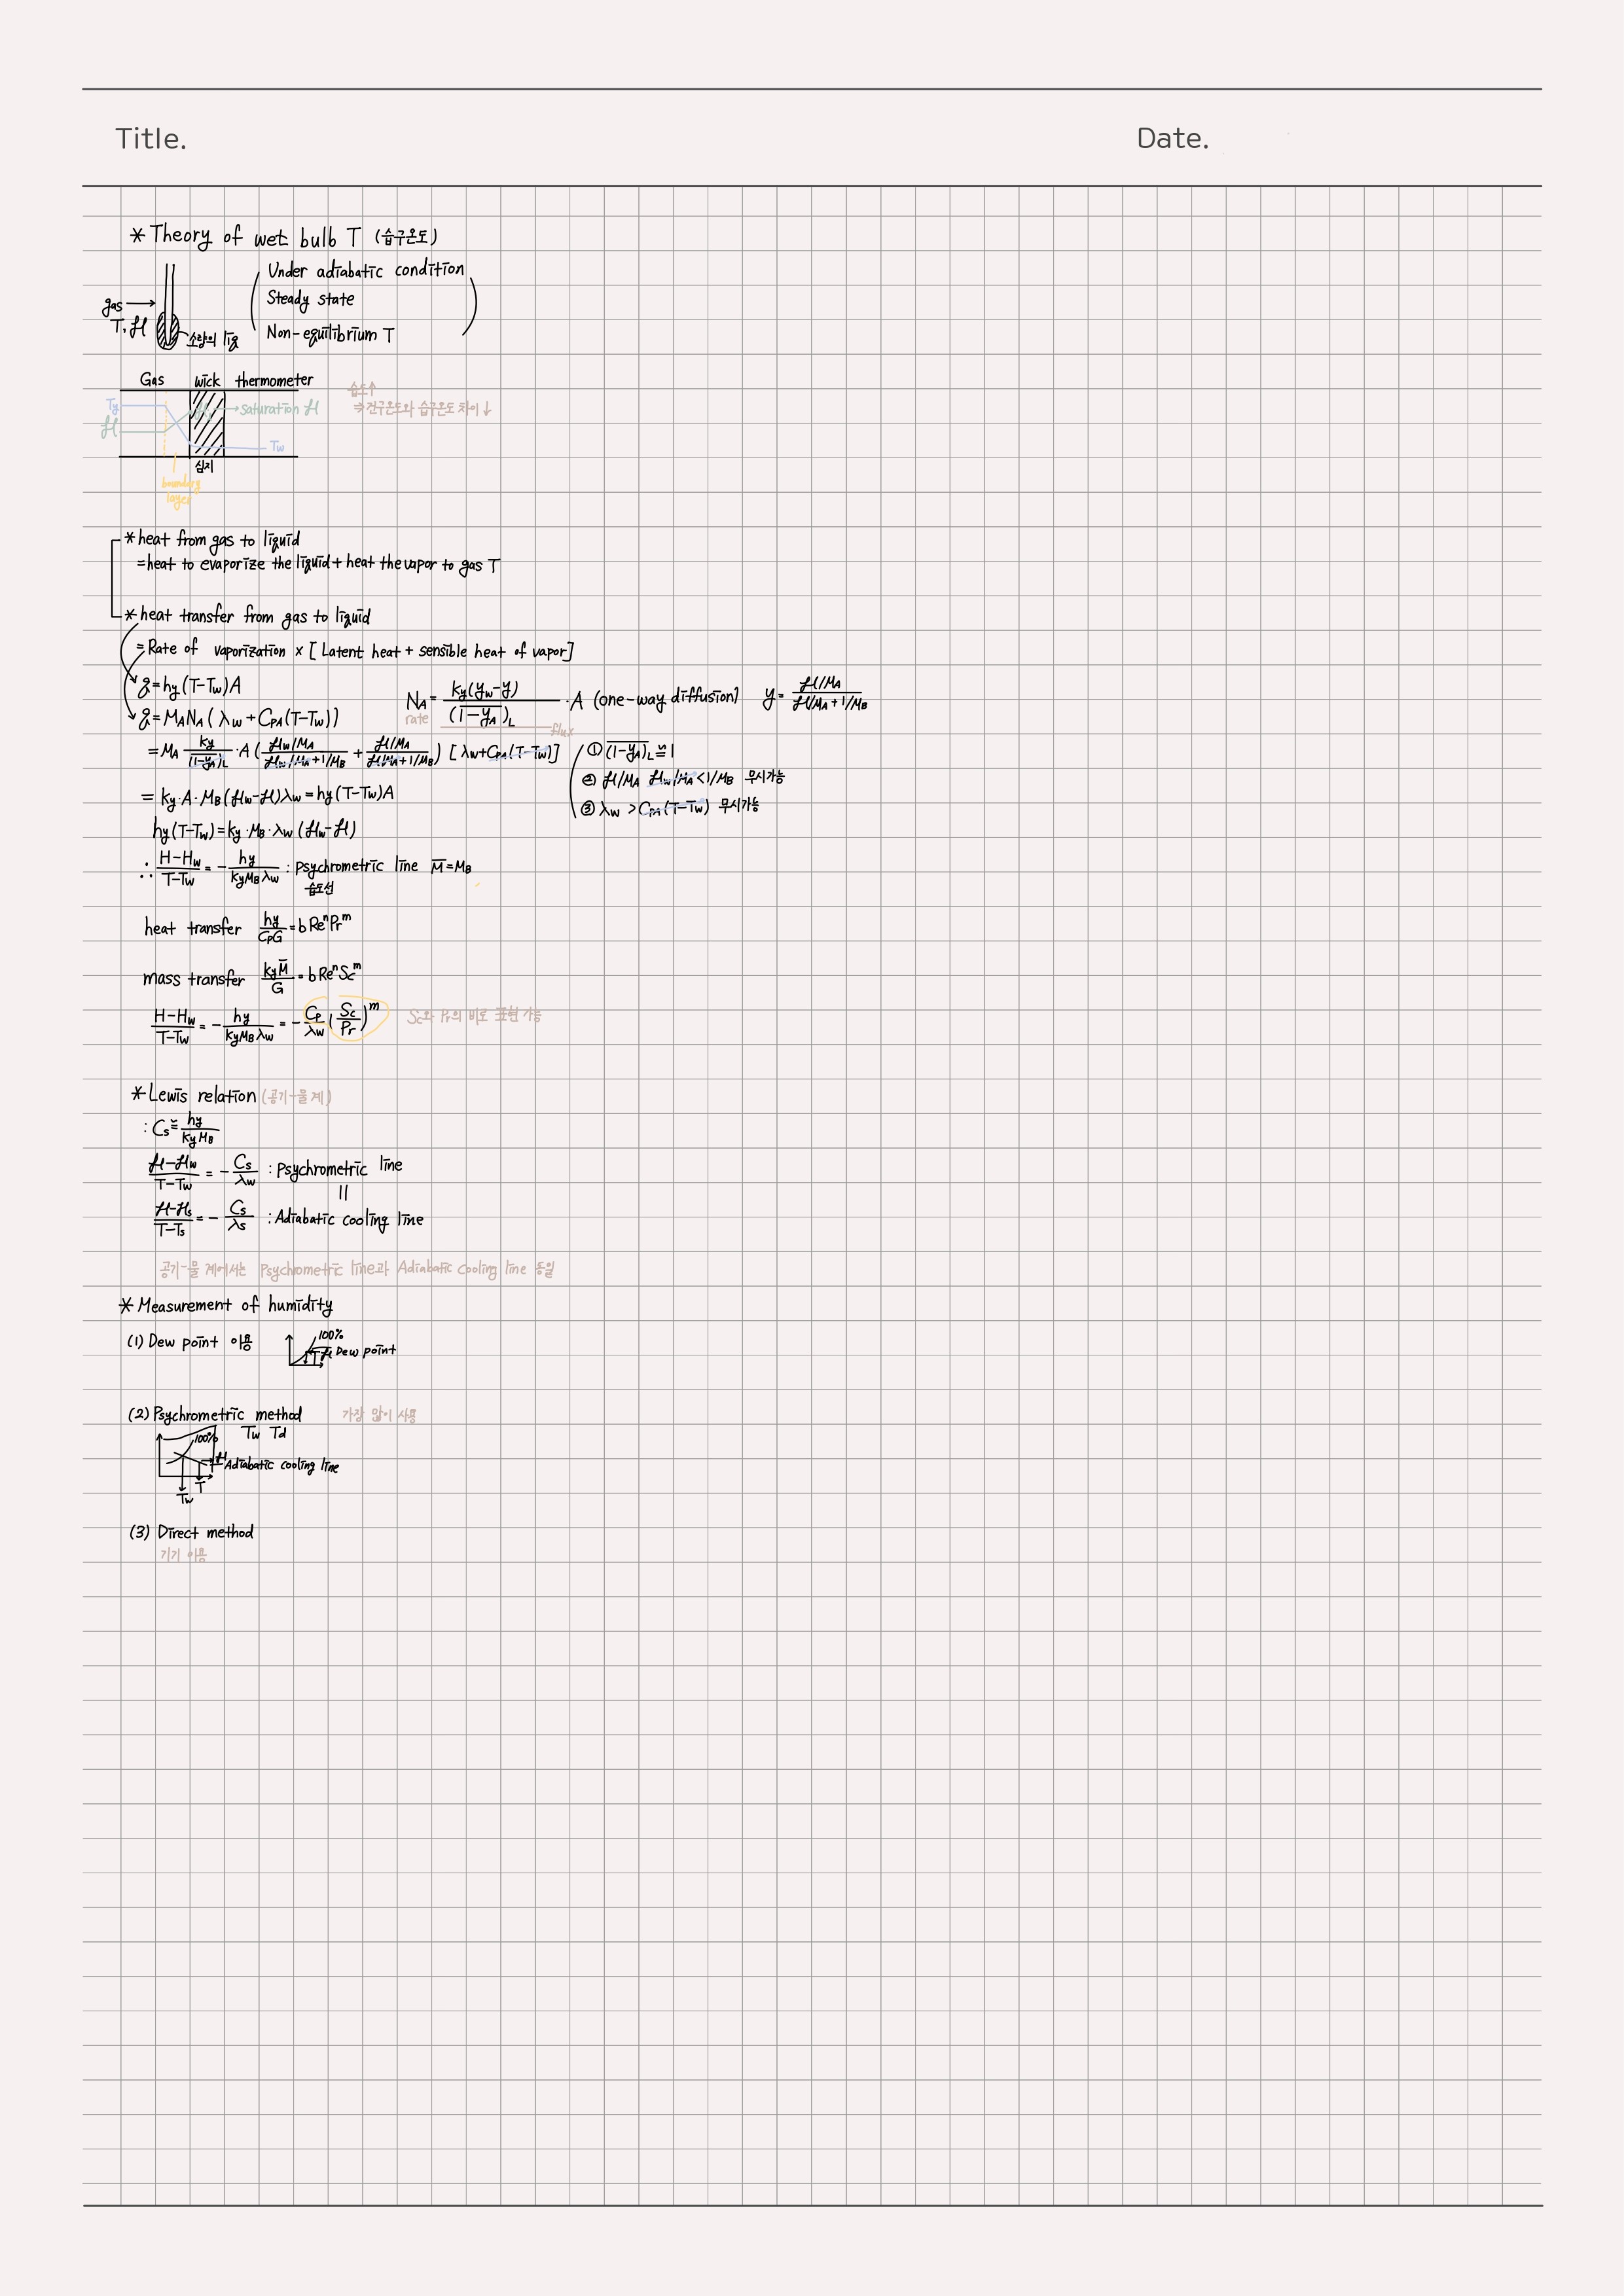 Title. Date.
* Theory of wet bulb T (습구온도)
Under adiabatic condition
Steady state
Non-equilibrium T
gas →
T, ℋ
소량의 liq
Gas wick thermometer
Ty
ℋ
→ saturation ℋ
Tw
심지
boundary
layer
습도↑
⇒ 건구온도와 습구온도 차이 ↓
* heat from gas to liquid
= heat to evaporize the liquid + heat the vapor to gas T
* heat transfer from gas to liquid
= Rate of vaporization × [Latent heat + sensible heat of vapor]
q = hy(T-Tw)A
NA = ky(yw-y)/(1-yA)L · A (one-way diffusion) y = (ℋ/MA)/(ℋ/MA + 1/MB)
rate flux
q = MANA(λw + CPA(T-Tw))
= MA ky/(1-yA)L · A ((ℋw/MA)/(ℋw/MA + 1/MB) + (ℋ/MA)/(ℋ/MA + 1/MB)) [λw + CPA(T-Tw)]
① (1-yA)L ≅ 1
② ℋ/MA ℋw/MA < 1/MB 무시가능
③ λw > CPA(T-Tw) 무시가능
= ky·A·MB(ℋw-ℋ)λw = hy(T-Tw)A
hy(T-Tw) = ky·MB·λw(ℋw-ℋ)
∴ (H-Hw)/(T-Tw) = - hy/(kyMBλw) : psychrometric line M̅ = MB
습도선
heat transfer hy/(CpG) = b Re^n Pr^m
mass transfer kyM̅/G = b Re^n Sc^m
(H-Hw)/(T-Tw) = - hy/(kyMBλw) = - Cp/λw (Sc/Pr)^m Sc와 Pr의 비로 표현 가능
* Lewis relation (공기-물 계)
: Cs ≅ hy/(kyMB)
(ℋ-ℋw)/(T-Tw) = - Cs/λw : psychrometric line
||
(ℋ-ℋs)/(T-Ts) = - Cs/λs : Adiabatic cooling line
공기-물 계에서는 Psychrometric line과 Adiabatic cooling line 동일
* Measurement of humidity
(1) Dew point 이용
100%
ℋ Dew point
(2) Psychrometric method 가장 많이 사용
Tw Td
100%
ℋ
Adiabatic cooling line
T
Tw
(3) Direct method
기기 이용